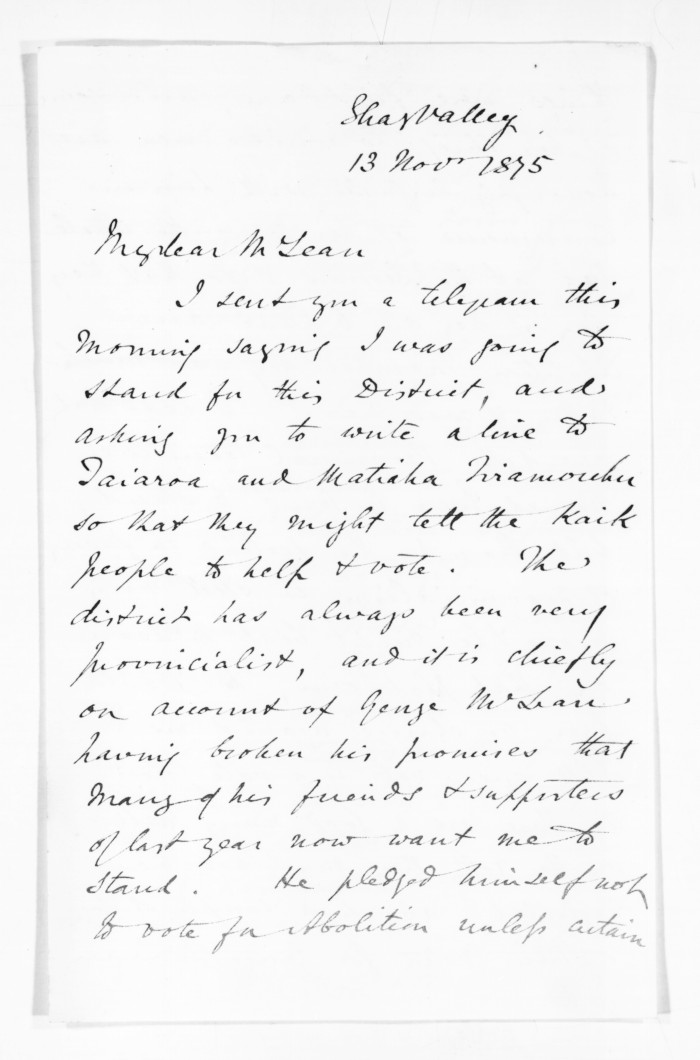 Shag Valley
13 Novr 1875
My dear McLean
I sent you a telegram this
morning saying I was going to
stand for this District, and
asking you to write a line to
Taiaroa and Matiaha
so that they might tell the Kaik
people to help & vote. The
district has always been very
provincialist, and it is chiefly
on account of George McLean
having broken his promises that
many of his friends & supporters
of last year now want me to
stand. He pledged himself not
to vote for Abolition unless certain